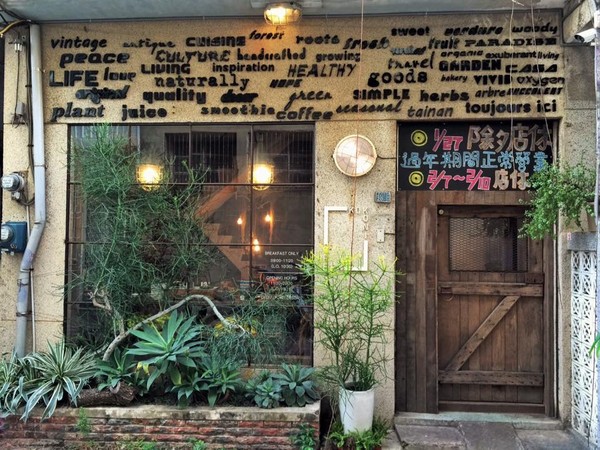 vintage antique CUISINE forest roots sweet verdure woody
peace CULTURE handcrafted growing fruit PARADISE
LIFE love LIVING inspiration HEALTHY travel GARDEN organic restaurant living
original naturally HOPE goods bakery VIVID oxygen
quality deer green SIMPLE herbs arbre SUCCULENT
plant juice smoothie coffee seasonal tainan toujours ici
1/27 除夕店休
過年期間正常營業
2/7~2/10 店休
BREAKFAST ONLY
OPENING HOURS